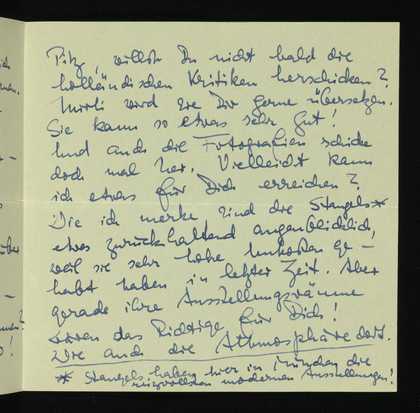 Pitz, willst Du nicht bald die
holländischen Kritiken herschicken?
wird sie Dir gerne übersetzen.
Sie kann so etwas sehr gut!
Und auch die Fotografien schicke
doch mal her. Vielleicht kann
ich etwas für Dich erreichen?
Wie ich merke, sind die Stangels*
etwas zurückhaltend augenblicklich,
weil sie sehr hohe Unkosten ge-
habt haben in letzter Zeit. Aber
gerade ihre Ausstellungsräume
wären das Richtige für Dich!
Wie auch die Athmosphäre dort.
* Stangels haben hier in München die
reizvollsten modernen Ausstellungen!